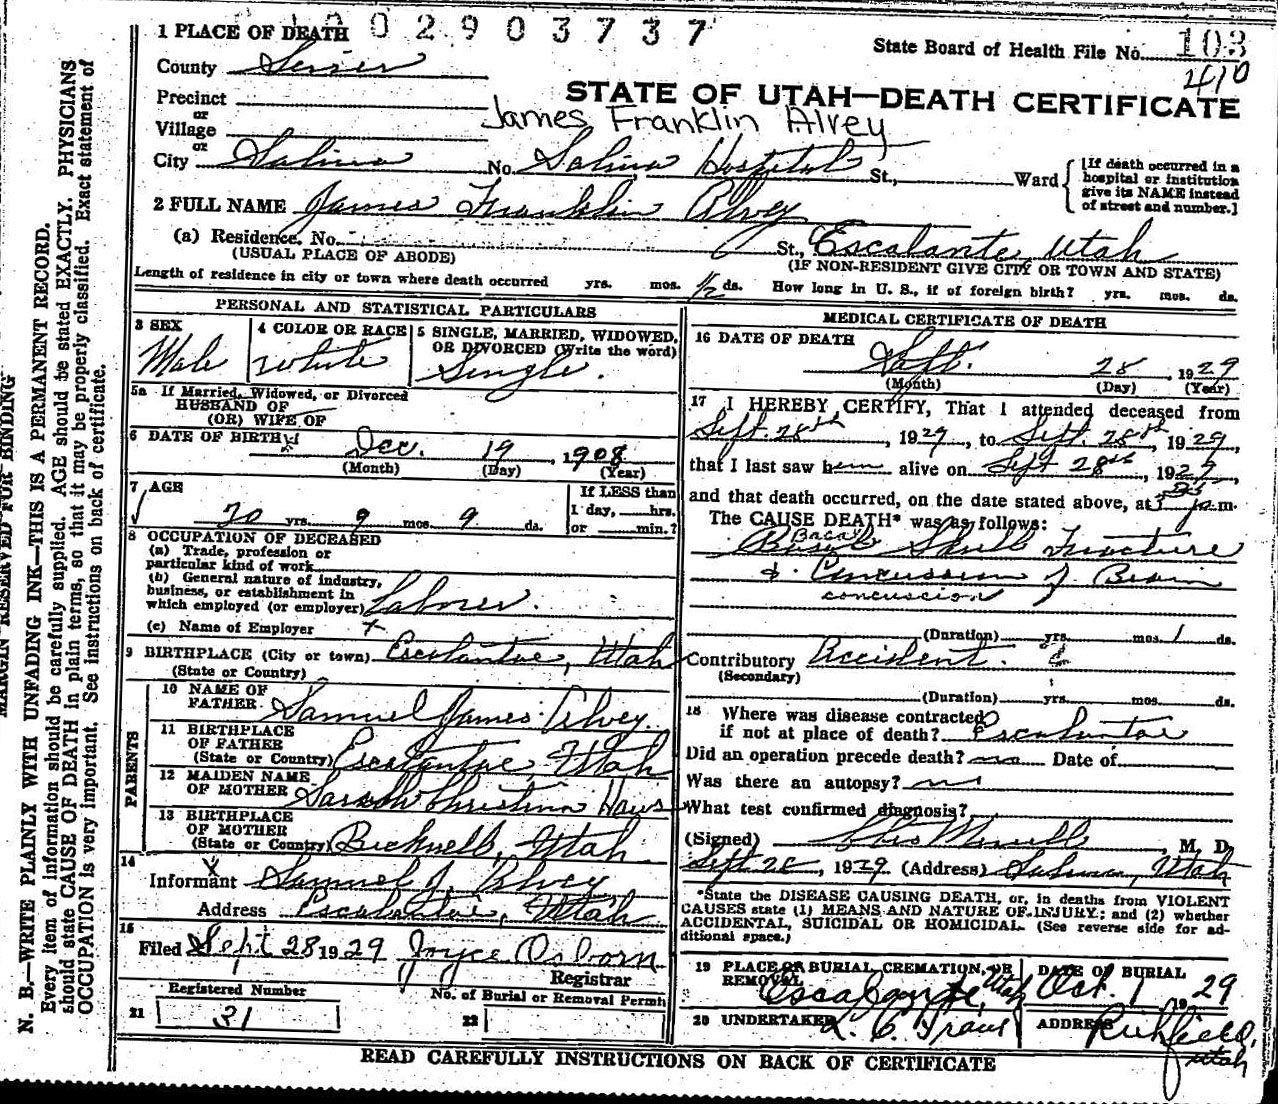 02903737
1 PLACE OF DEATH
State Board of Health File No. 103
410
County Sevier
STATE OF UTAH—DEATH CERTIFICATE
Precinct
or
James Franklin Alvey
Village
or
City Salina No. Salina Hospital St., Ward
[If death occurred in a
hospital or institution
give its NAME instead
of street and number.]
2 FULL NAME James Franklin Alvey
(a) Residence. No. St., Escalante, Utah
(USUAL PLACE OF ABODE) (IF NON-RESIDENT GIVE CITY OR TOWN AND STATE)
Length of residence in city or town where death occurred yrs. mos. 1/2 ds. How long in U. S., if of foreign birth? yrs. mos. ds.
PERSONAL AND STATISTICAL PARTICULARS
3 SEX
Male
4 COLOR OR RACE
White
5 SINGLE, MARRIED, WIDOWED,
OR DIVORCED (Write the word)
Single.
5a If Married, Widowed, or Divorced
HUSBAND OF
(OR) WIFE OF
6 DATE OF BIRTH Dec. 19, 1908
(Month) (Day) (Year)
7 AGE
20 yrs. 9 mos. 9 ds.
If LESS than
1 day, hrs.
or min.?
8 OCCUPATION OF DECEASED
(a) Trade, profession or
particular kind of work
(b) General nature of industry,
business, or establishment in
which employed (or employer) Laborer.
(c) Name of Employer
9 BIRTHPLACE (City or town) Escalante, Utah
(State or Country)
PARENTS
10 NAME OF
FATHER Samuel James Alvey
11 BIRTHPLACE
OF FATHER
(State or Country) Escalante Utah
12 MAIDEN NAME
OF MOTHER Sarah Christina Haws
13 BIRTHPLACE
OF MOTHER
(State or Country) Bicknell, Utah
14
Informant Samuel J. Alvey
Address Escalante, Utah
15
Filed Sept 28 1929 Joyce Osborn
Registrar
Registered Number
21 31
No. of Burial or Removal Permit
22
MEDICAL CERTIFICATE OF DEATH
16 DATE OF DEATH
Sept. 28, 1929
(Month) (Day) (Year)
17 I HEREBY CERTIFY, That I attended deceased from
Sept. 28th, 1929, to Sept. 28th, 1929,
that I last saw him alive on Sept 28th, 1929,
and that death occurred, on the date stated above, at p.m.
The CAUSE DEATH* was as follows:
Basal Skull Fracture
& Concussion of Brain
concuscion
(Duration) yrs. mos. 1 ds.
Contributory Accident.
(Secondary)
(Duration) yrs. mos. ds.
18 Where was disease contracted
if not at place of death? Escalante
Did an operation precede death? no Date of
Was there an autopsy? no
What test confirmed diagnosis?
(Signed) M. D.
Sept 28, 1929 (Address) Salina, Utah
*State the DISEASE CAUSING DEATH, or, in deaths from VIOLENT
CAUSES state (1) MEANS AND NATURE OF INJURY; and (2) whether
ACCIDENTAL, SUICIDAL OR HOMICIDAL. (See reverse side for ad-
ditional space.)
19 PLACE OR BURIAL CREMATION, OR
REMOVAL
Escalante, Utah
DATE OF BURIAL
Oct. 1 1929
20 UNDERTAKER
ADDRESS Richfield,
Utah
READ CAREFULLY INSTRUCTIONS ON BACK OF CERTIFICATE
MARGIN RESERVED FOR BINDING
N. B.—WRITE PLAINLY WITH UNFADING INK—THIS IS A PERMANENT RECORD.
Every item of information should be carefully supplied. AGE should be stated EXACTLY. PHYSICIANS
should state CAUSE OF DEATH in plain terms, so that it may be properly classified. Exact statement of
OCCUPATION is very important. See instructions on back of certificate.